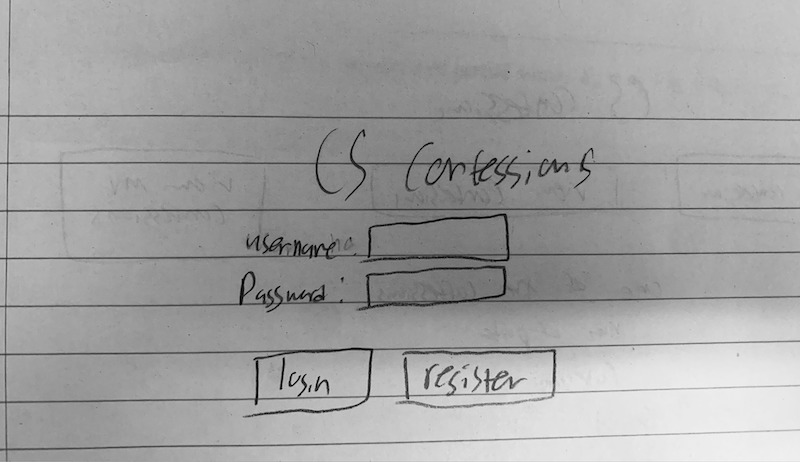 CS Confessions
username:
Password:
login register